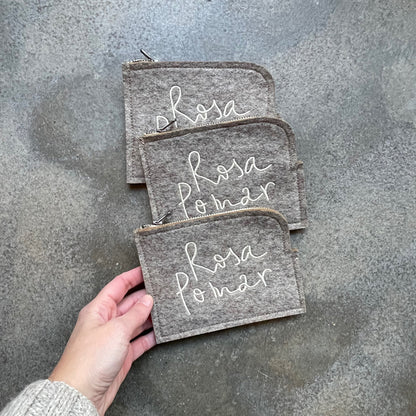 Rosa
Rosa
Pomar
Rosa
Pomar